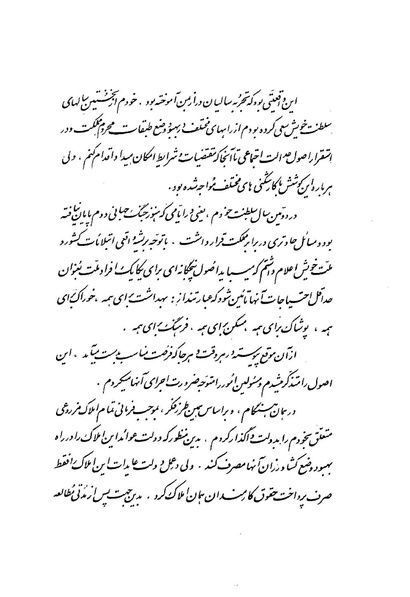 این واقعیتی بود که تجربه سالیان دراز بمن آموخته بود . خود من از نخستین سالهای
سلطنت خویش سعی کرده بودم از راههای مختلف در بهبود وضع طبقات محروم مملکت و در
استقرار اصول عدالت اجتماعی تا آنجا که مقتضیات و شرایط امکان میداد اقدام کنم ، ولی
هر بار این کوشش ها با کارشکنی های مختلف مواجه شده بود .
در دومین سال سلطنت خودم ، یعنی در ایامی که هنوز جنگ جهانی دوم پایان نیافته
بود و مسائل حادتری در برابر مملکت قرار داشت . با توجه بریشه واقعی ابتلائات کشور و
ملت خویش اعلام داشتم که میباید اصول پنجگانه ای برای یکایک افراد ملت بعنوان
حداقل احتیاجات آنها تأمین شود که عبارتند از : بهداشت برای همه ، خوراک برای
همه ، پوشاک برای همه ، مسکن برای همه . فرهنگ برای همه .
از آن موقع پیوسته و هر وقت و هر جا که فرصت مناسب بدست میآمد . این
اصول را متذکر میشدم و مسئولین امور را متوجه ضرورت اجرای آنها میکردم .
در همان هنگام ، و بر اساس همین طرز فکر ، بموجب فرمانی تمام املاک مزروعی
متعلق بخودم را بدولت واگذار کردم . بدین منظور که دولت عوائد این املاک را در راه
بهبود وضع کشاورزان آنها مصرف کند . ولی در عمل دولت عایدات این املاک را فقط
صرف پرداخت حقوق کارمندان همان املاک کرد . بدین جهت پس از مدتی مطالعه